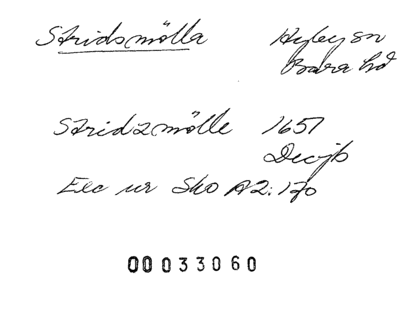 Stridsmölla Hyby sn
Bara hd
Stridzmölle 1651
Decjb
Exc ur Sko A2:170
00033060